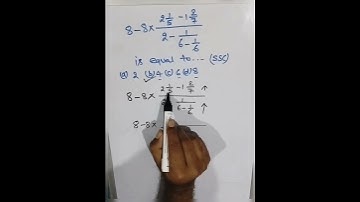 8 - 8 × (2 1/5 - 1 2/7) / (2 - 1/(6 - 1/6))
is equal to... (SSC)
(a) 2 (b) 4 (c) 6 (d) 8
8 - 8 × (2 1/5 - 1 2/7) ↑ / ( 1/(6 - 1/6)) ↑
8 - 8 ×